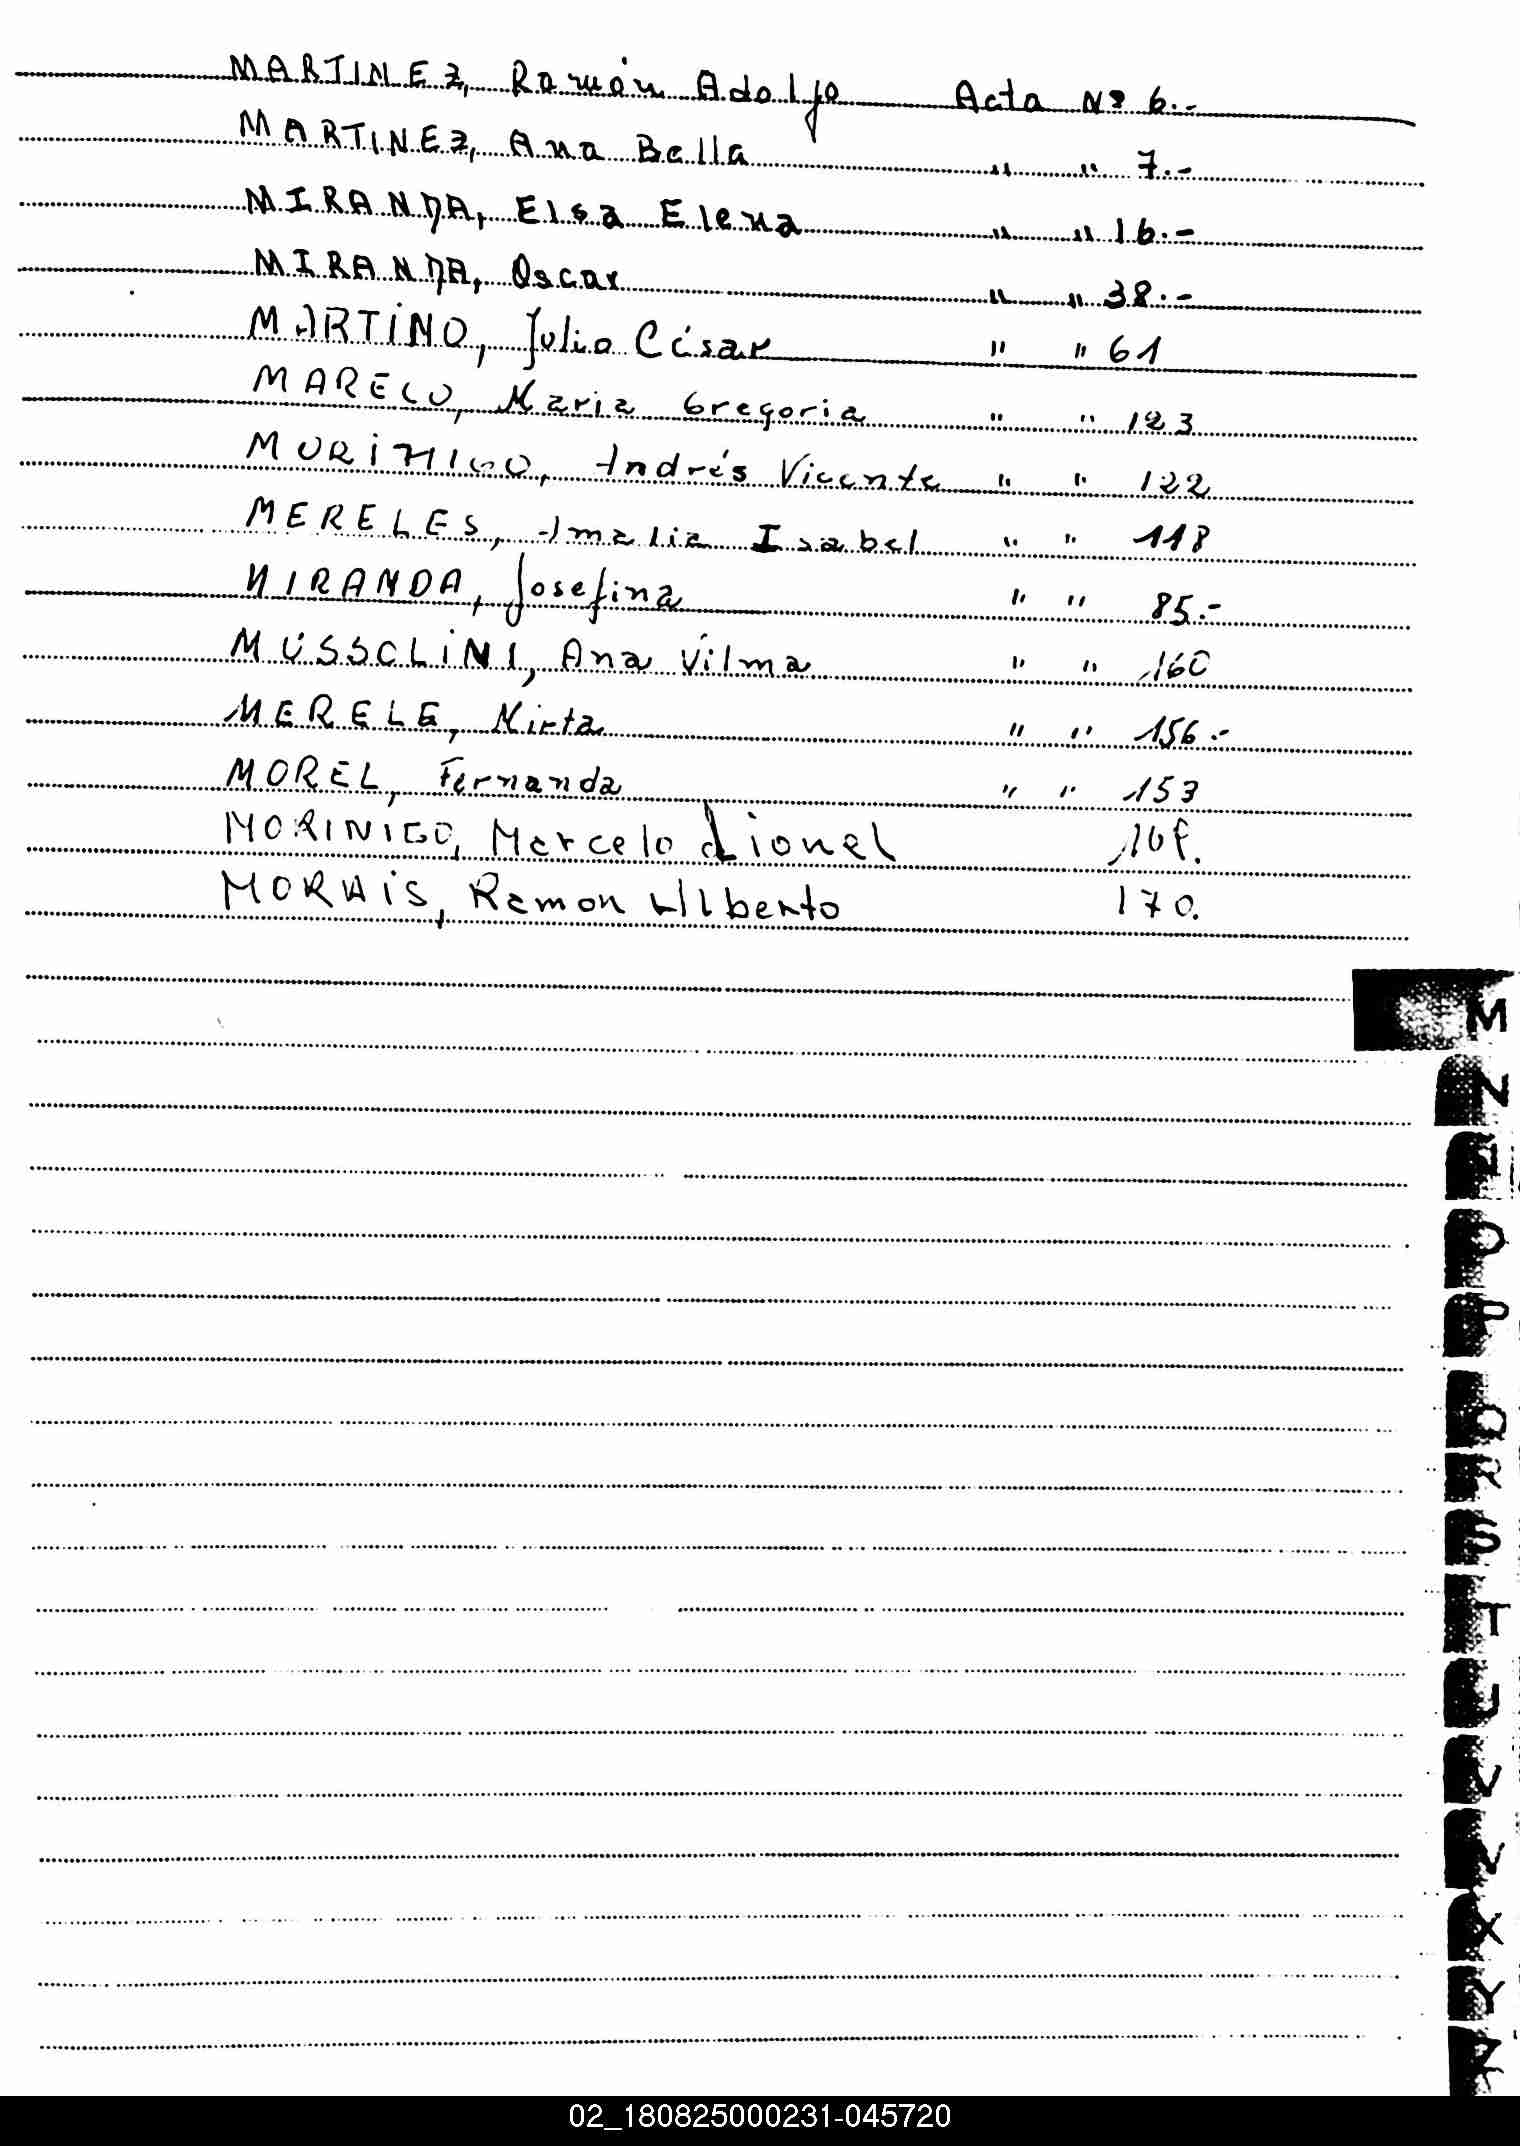 MARTINEZ, Ramón Adolfo Acta Nº 6.-
MARTINEZ, Ana Bella " " 7.-
MIRANDA, Elsa Elena " " 16.-
MIRANDA, Oscar " " 38.-
MARTINO, Julio César " " 61
MARECO, Maria Gregoria " " 123
MORINIGO, Andrés Vicente " " 122
MERELES, Amalia Isabel " " 118
MIRANDA, Josefina " " 85.-
MUSSOLINI, Ana Vilma " " 160
MERELE, Mirta " " 156.-
MOREL, Fernanda " " 153
MORINIGO, Marcelo Lionel
MORAIS, Ramon Alberto 170.
M
N
Ñ
O
P
Q
R
S
T
U
V
W
X
Y
Z
02_180825000231-045720